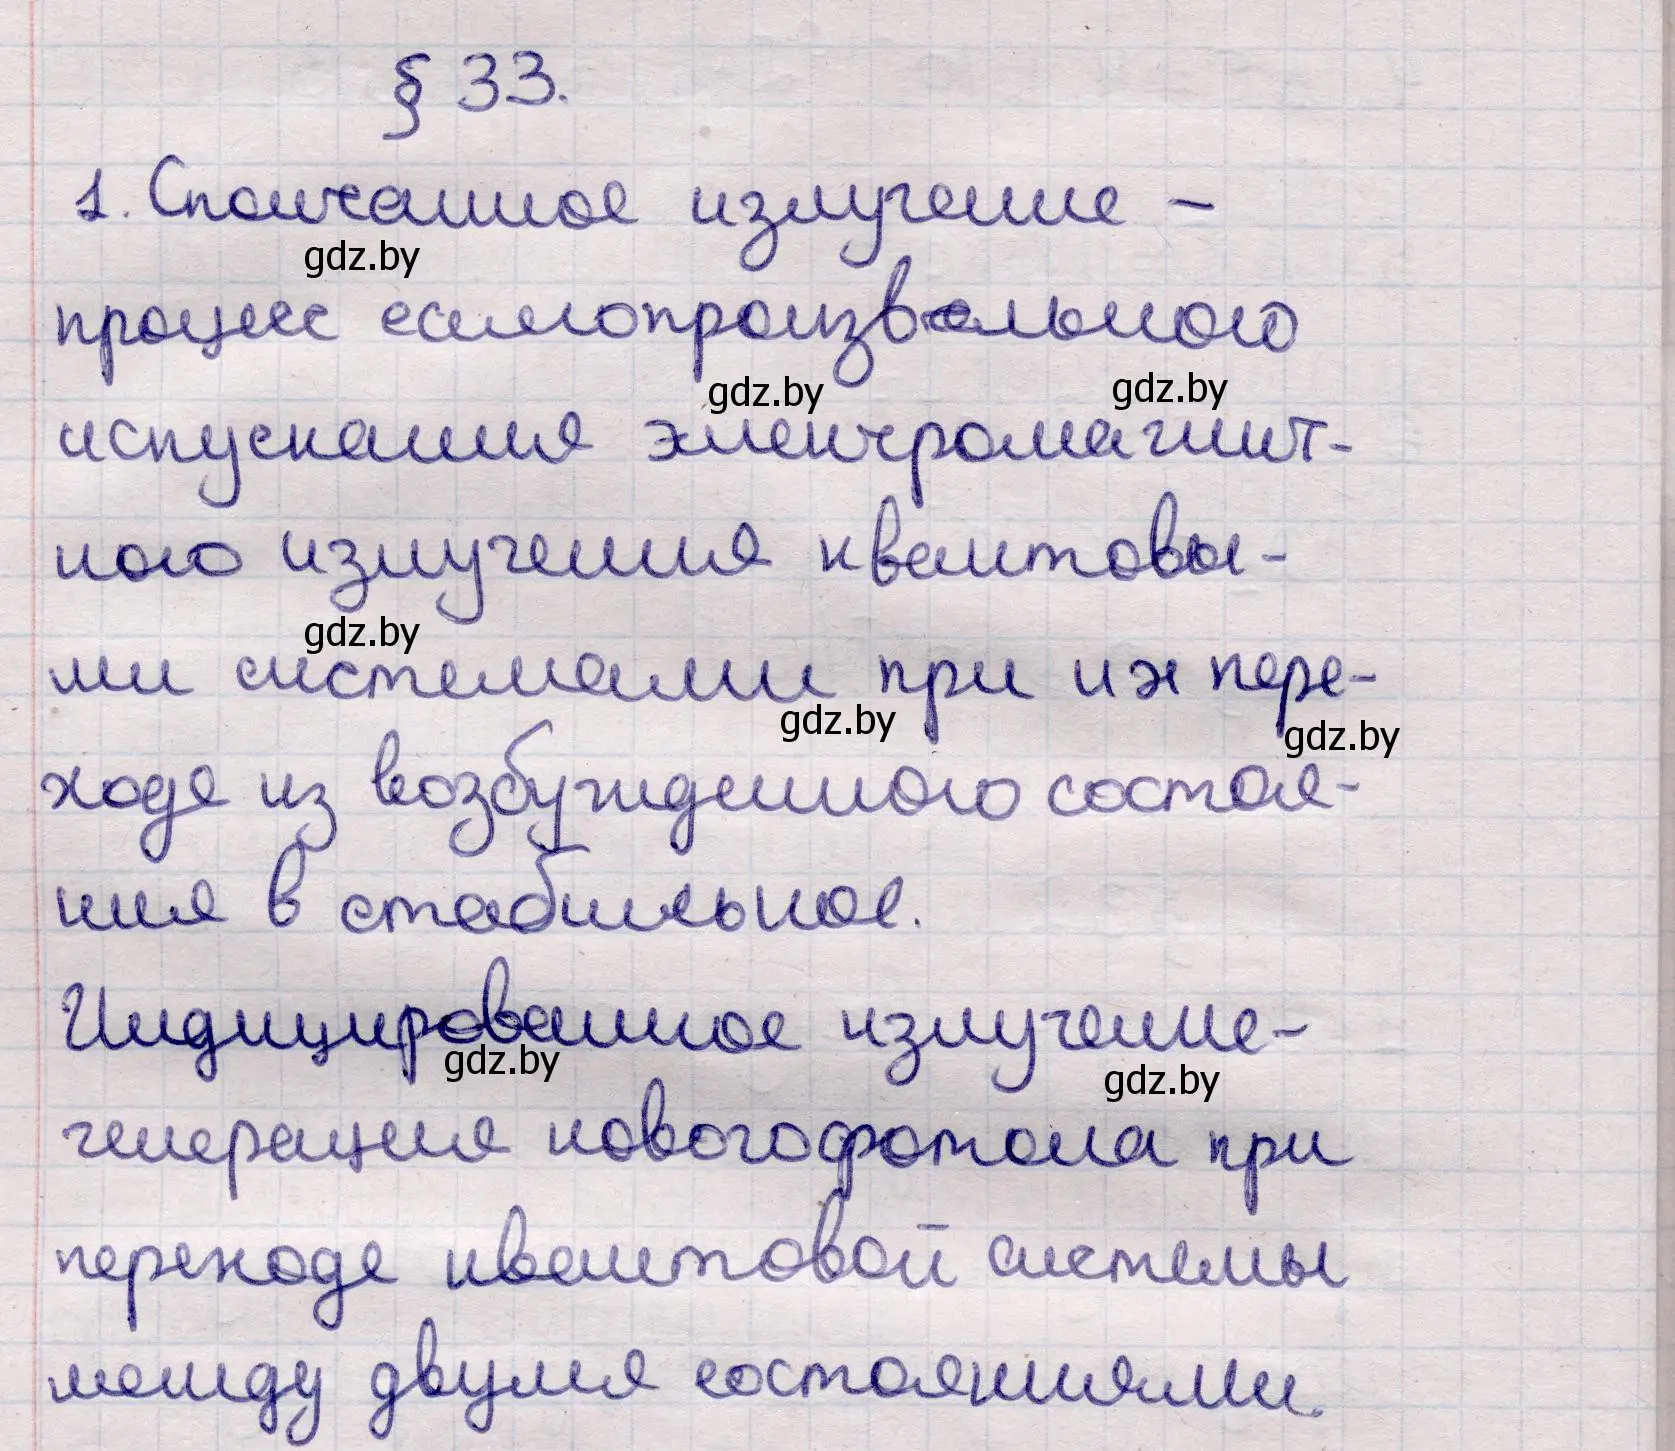 § 33.
1. Спонтанное излучение –
gdz.by
процесс самопроизвольного
gdz.by gdz.by
испускания электромагнит-
ного излучения квантовы-
gdz.by
ми системами при их пере-
gdz.by gdz.by
ходе из возбужденного состоя-
ния в стабильное.
Индицированное излучение-
gdz.by gdz.by
генерация нового фотона при
переходе квантовой системы
между двумя состояниями.